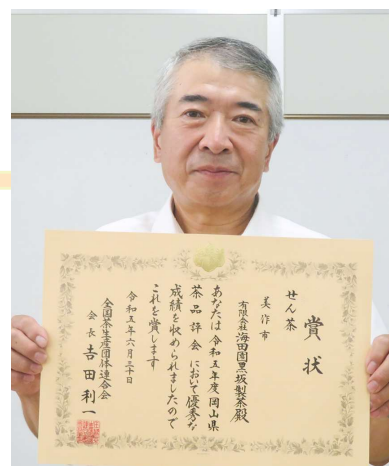 賞状
せん茶
美作市
有限会社海田園黒坂製茶殿
あなたは令和五年度岡山県
茶品評会において優秀な
成績を収められましたので
これを賞します
令和五年六月三十日
全国茶生産団体連合会
会長 吉田利一